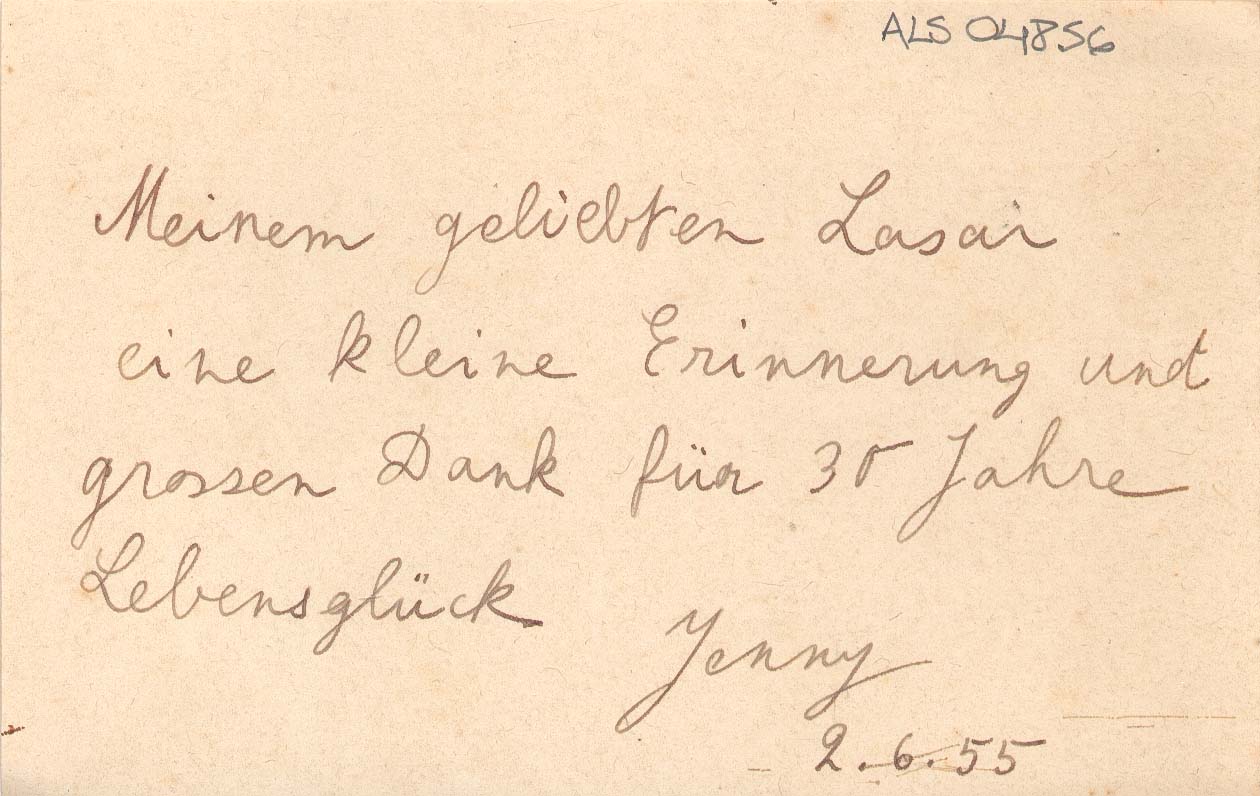 ALS 04856
Meinem geliebten Lasar
eine kleine Erinnerung und
grossen Dank für 30 Jahre
Lebensglück
Jenny
2.6.55